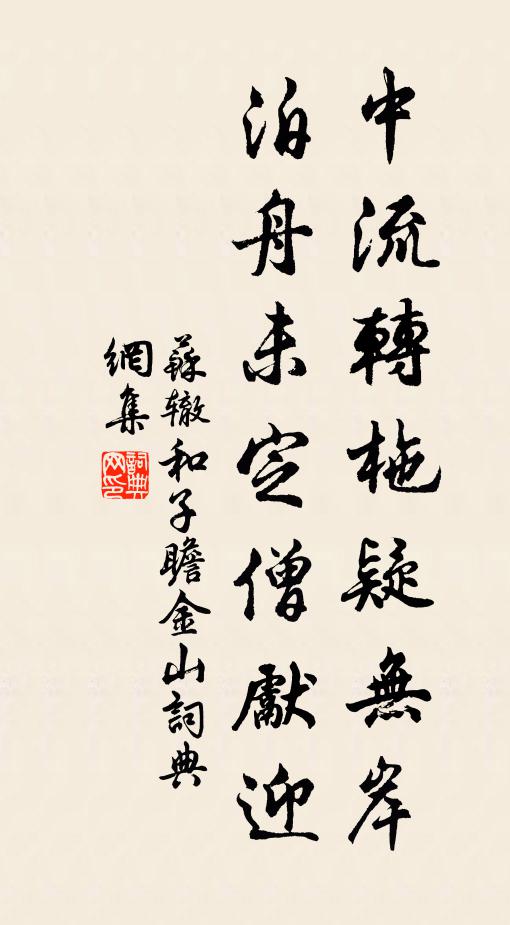 中流轉柂疑無岸
泊舟未定僧獻迎
蘇辙和子瞻金山詞典
網集
詞典
网印